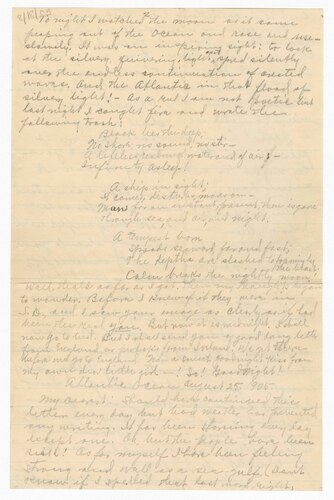 8/18/05
To night I watched the moon as it came
peeping out of the Ocean and rose and rose
slowly. It was an inspiring sight: to look
at the silvery, quivering, light, spread silently
over the endless continuation of crested
waves, and the Atlantic in that flood of
silvery light! – As a rule I am not poetic but
last night I caught fire and wrote the
following trash:
Black lies the deep,
No shore, no sound, no stir –
A lifeless water and air,
Infinity asleep!
A ship in sight,
It comes,
Man for an instant, present, now is gone
Through sea and air, yet night.
A Tempest born
Spreads seaward far and fast,
The depths are slashed to foaming by the blast,
Calm breaks the night, the moon
Well, that's as far as I got. Then my thoughts began
to wonder. Before I knew it they were in
S.D. and I saw your image as clearly as if it had
been the real you. But now it is midnight, I shall
now go to bed. But I shall send you a good long letter
from England or perhaps from

my own dear little girl – ! So! Good Night!
Atlantic Ocean August 25. 1905.
My dearest: I should have continued this
letter every day but bad weather has prevented
any writing. It has been storming every day
except one. Oh but the people have been
sick! As for myself I have been feeling
strong and well as a sea gull. (I don't
know if I spelled that last word right,